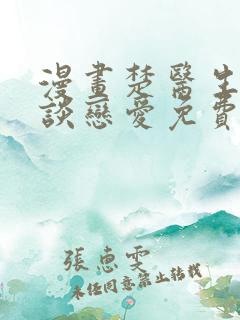 漫畫楚醫生
談戀愛免費
張惠雯
未经同意禁止转载